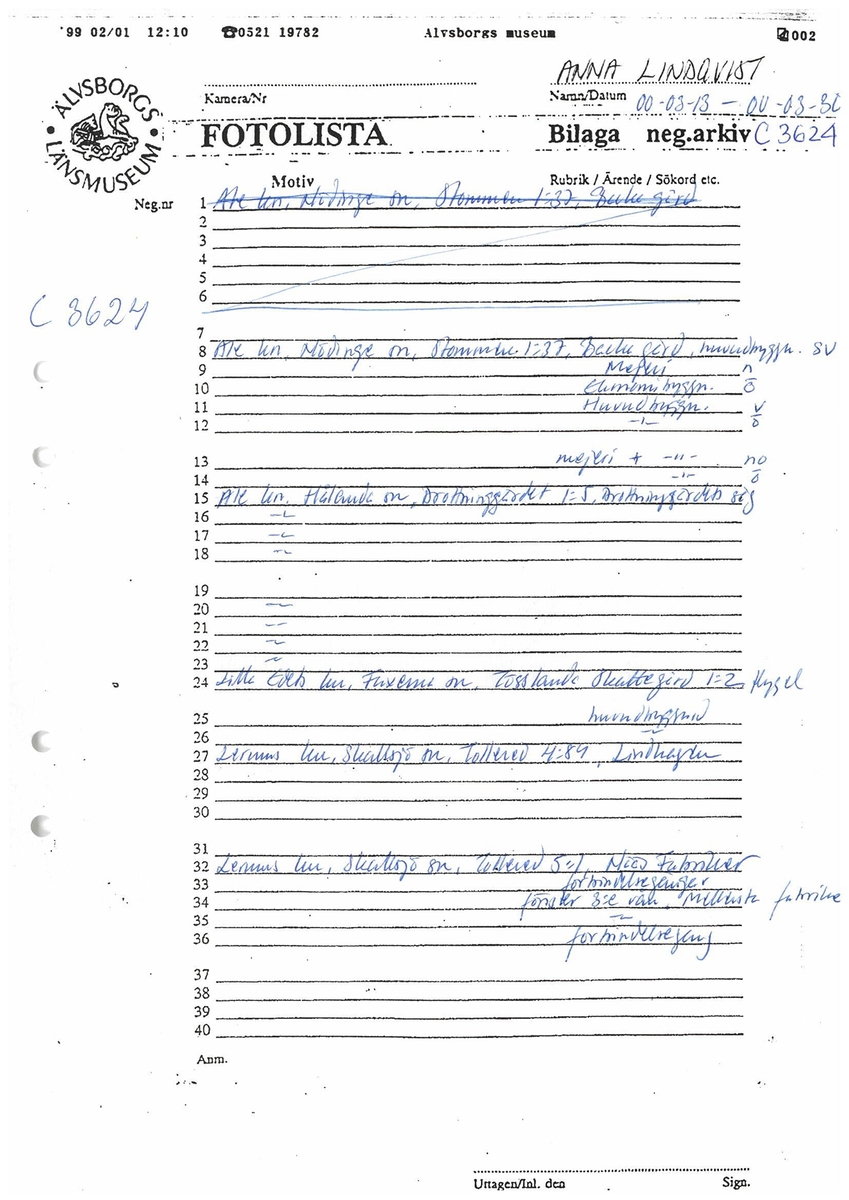 '99 02/01 12:10 ☎0521 19782 Alvsborgs museum 002
ÄLVSBORGS LÄNSMUSEUM
ANNA LINDQVIST
Kamera/Nr Namn/Datum 00-03-13 – 00-03-30
FOTOLISTA Bilaga neg.arkiv C 3624
Motiv Rubrik / Ärende / Sökord etc.
Neg.nr 1 Ale kn, Nödinge sn, Stommen 1:37, Backa gård
2
3
4
5
6
C 3624
7
8 Ale kn, Nödinge sn, Stommen 1:37, Backa gård, huvudbyggn. SV
9 Mejeri n
10 Ekonomibyggn. ö
11 Huvudbyggn. v
12 -"- ö
13 mejeri + -"- no
14 -"- ö
15 Ale kn. Hålanda sn, Drottninggärdet 1:5, Drottninggärdets såg
16 -"-
17 -"-
18 -"-
19
20 -"-
21 -"-
22 -"-
23 -"-
24 Lilla Edets kn, Fuxerna sn, Tösslanda Skattegård 1:2 flygel
25 huvudbyggnad
26 -"-
27 Lerums kn, Skallsjö sn, Tollered 4:84, Lindhagen
28
29
30
31
32 Lerums kn, Skallsjö sn, Tollered 5:1, Nääs Fabriker
33 förbindelsegånger
34 fönster 3:e vån. Mellersta fabriken
35 -"-
36 förbindelsegång
37
38
39
40
Anm.
Uttagen/Inl. den Sign.